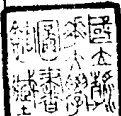 國立清
華大學
圖書
館藏